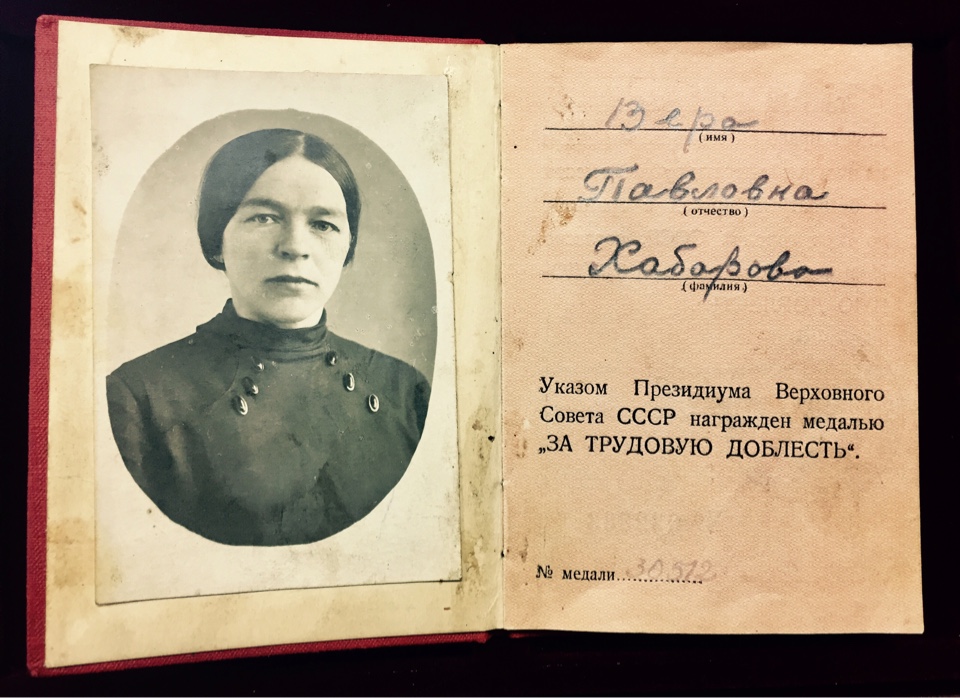 Вера
(имя)
Павловна
(отчество)
Хабарова
(фамилия)
Указом Президиума Верховного
Совета СССР награжден медалью
„ЗА ТРУДОВУЮ ДОБЛЕСТЬ“.
№ медали 30512